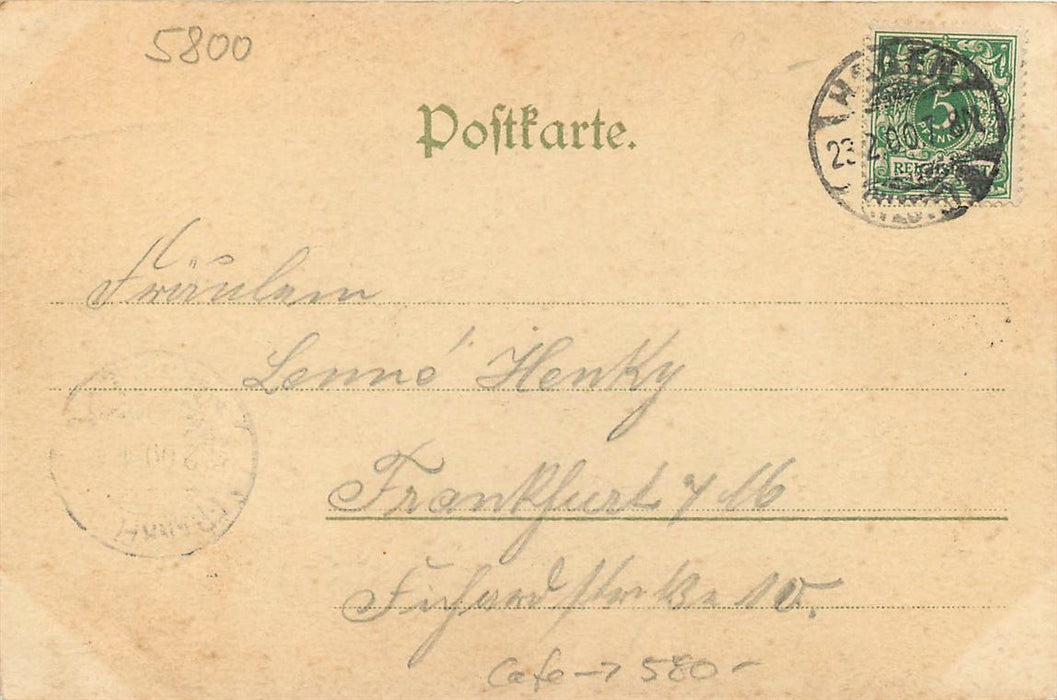 5800
Postkarte.
5
PFENNIG
REICHSPOST
HAGEN
23.2.00.7-8N.
(WESTF)
Fräulein
Lenné Henky
Frankfurt a/M
Fichardstraße 10.
Cafe → 580 -